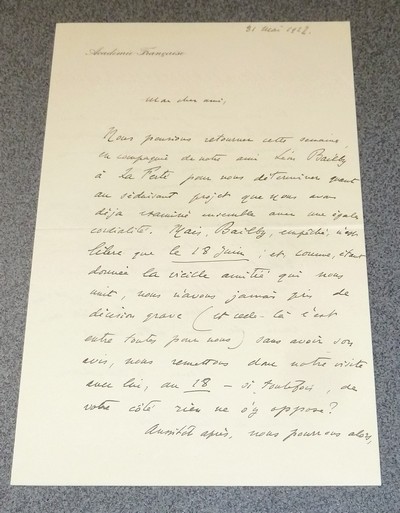 31 mai 1918.
Académie Française
Mon cher ami,
Nous pensions retourner cette semaine,
en compagnie de notre ami Léon Bailby
à La Ferté pour nous déterminer quant
au séduisant projet que nous avons
déjà examiné ensemble avec une égale
cordialité. Mais, Bailby, empêché, n'est
libre que le 18 juin; et comme, étant
donnée la vieille amitié qui nous
unit, nous n'avons jamais pris de
décision grave (et celle-là c'est
entre toutes pour nous) sans avoir son
avis, nous remettons donc notre visite
avec lui, au 18 – si toutefois, de
votre côté rien ne s'y oppose?
Aussitôt après, nous pourrons alors,